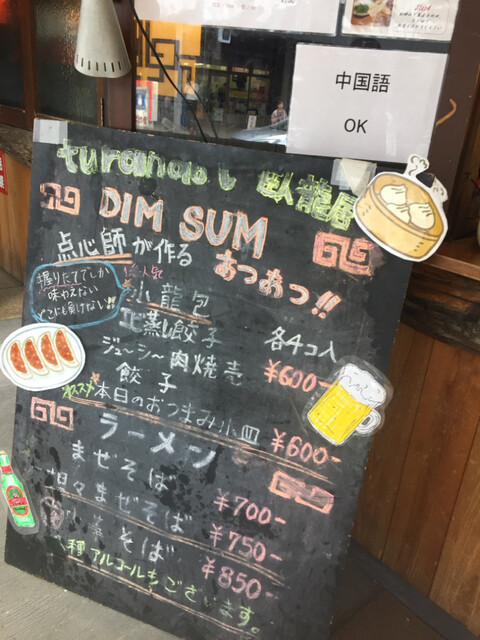 中国語
OK
臥龍居
DIM SUM
点心師が作る
あつあつ!!
握りたてでしか
味わえない
どこにも負けない!!
小龍包
蒸し餃子
各4コ入
ジューシー肉焼売
¥600-
餃子
オススメ
本日のおつまみ小皿
¥600-
ラーメン
¥700-
まぜそば
¥750-
担々まぜそば
¥850-
そば
種アルコールもございます。